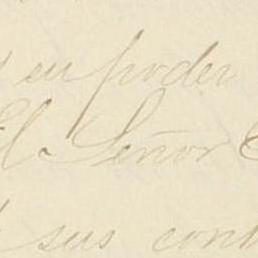 en poder
El Señor
sus cont